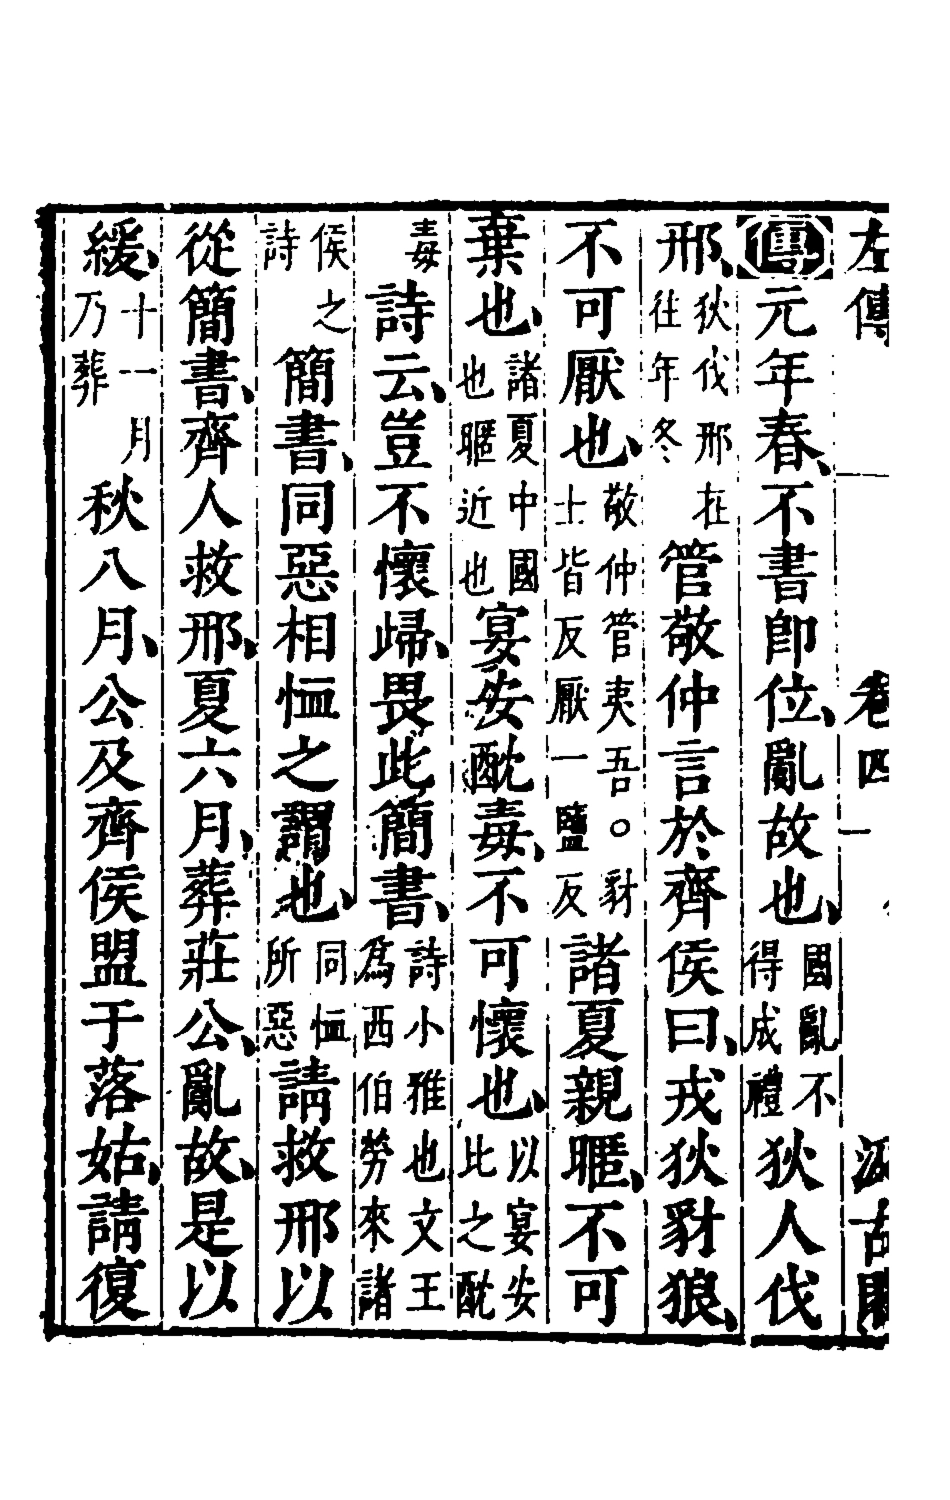 左傳 卷四 一 汲古閣
傳元年春、不書卽位、亂故也、國亂不得成禮狄人伐
邢、狄伐邢在往年冬管敬仲言於齊侯曰、戎狄豺狼、
不可厭也、敬仲管夷吾○豺士皆反厭一鹽反諸夏親暱、不可
棄也、諸夏中國也暱近也宴安酖毒、不可懷也、以宴安比之酖
毒詩云、豈不懷歸、畏此簡書、詩小雅也文王爲西伯勞來諸
侯之詩簡書、同惡相恤之謂也、同恤所惡請救邢以
從簡書、齊人救邢、夏六月、葬莊公、亂故、是以
緩、十一月乃葬秋八月、公及齊侯盟于落姑、請復